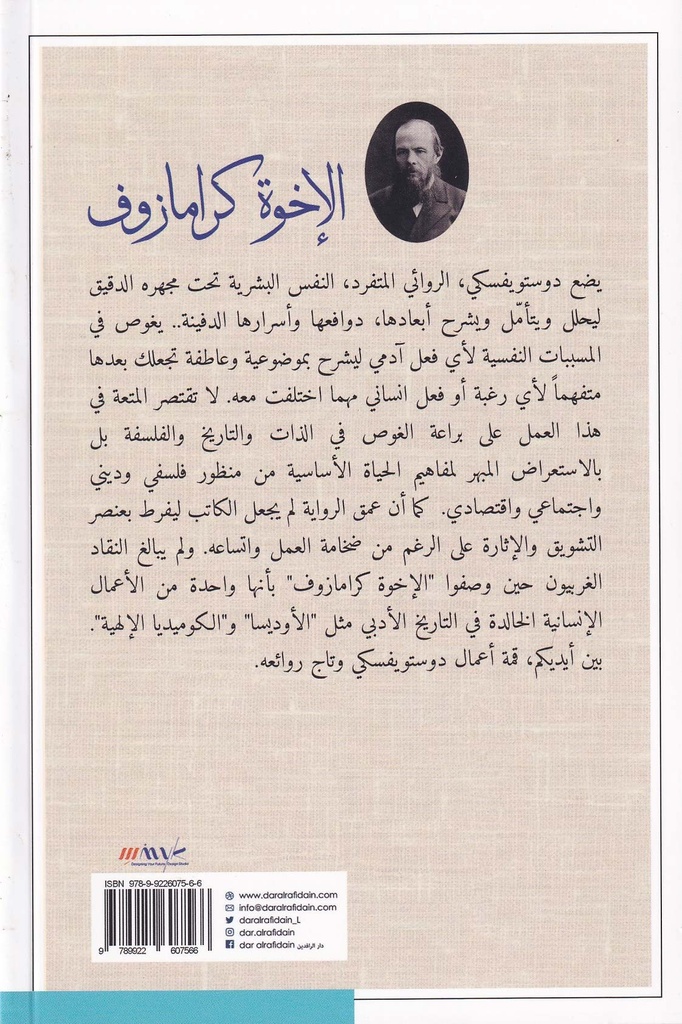 الإخوة كرامازوف
يضع دوستويفسكي، الروائي المتفرد، النفس البشرية تحت مجهره الدقيق
ليحلل ويتأمّل ويشرح أبعادها، دوافعها وأسرارها الدفينة.. يغوص في
المسببات النفسية لأي فعل آدمي ليشرح بموضوعية وعاطفة تجعلك بعدها
متفهماً لأي رغبة أو فعل انساني مهما اختلفت معه. لا تقتصر المتعة في
هذا العمل على براعة الغوص في الذات والتاريخ والفلسفة بل
بالاستعراض المبهر لمفاهيم الحياة الأساسية من منظور فلسفي وديني
واجتماعي واقتصادي. كما أن عمق الرواية لم يجعل الكاتب ليفرط بعنصر
التشويق والإثارة على الرغم من ضخامة العمل واتساعه. ولم يبالغ النقاد
الغربيون حين وصفوا "الإخوة كرامازوف" بأنها واحدة من الأعمال
الإنسانية الخالدة في التاريخ الأدبي مثل "الأوديسا" و"الكوميديا الإلهية".
بين أيديكم، قمة أعمال دوستويفسكي وتاج روائعه.
Designing Your Future Design Studio
ISBN 978-9-9226075-6-6
9 789922 607566
www.daralrafidain.com
info@daralrafidain.com
daralrafidain_L
dar.alrafidain
dar alrafidain دار الرافدين